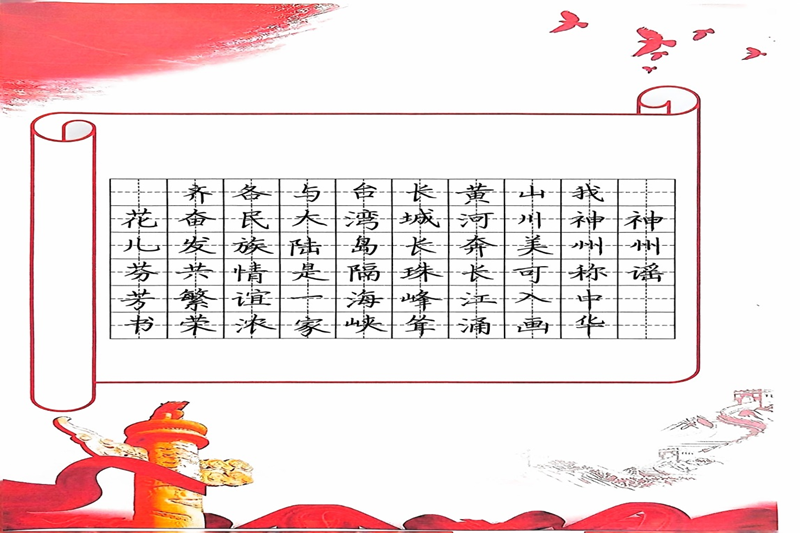 神州谣
我神州称中华
山川美可入画
黄河奔长江涌
长城长珠峰耸
台湾岛隔海峡
与大陆是一家
各民族情谊浓
齐奋发共繁荣
花儿芬芳书